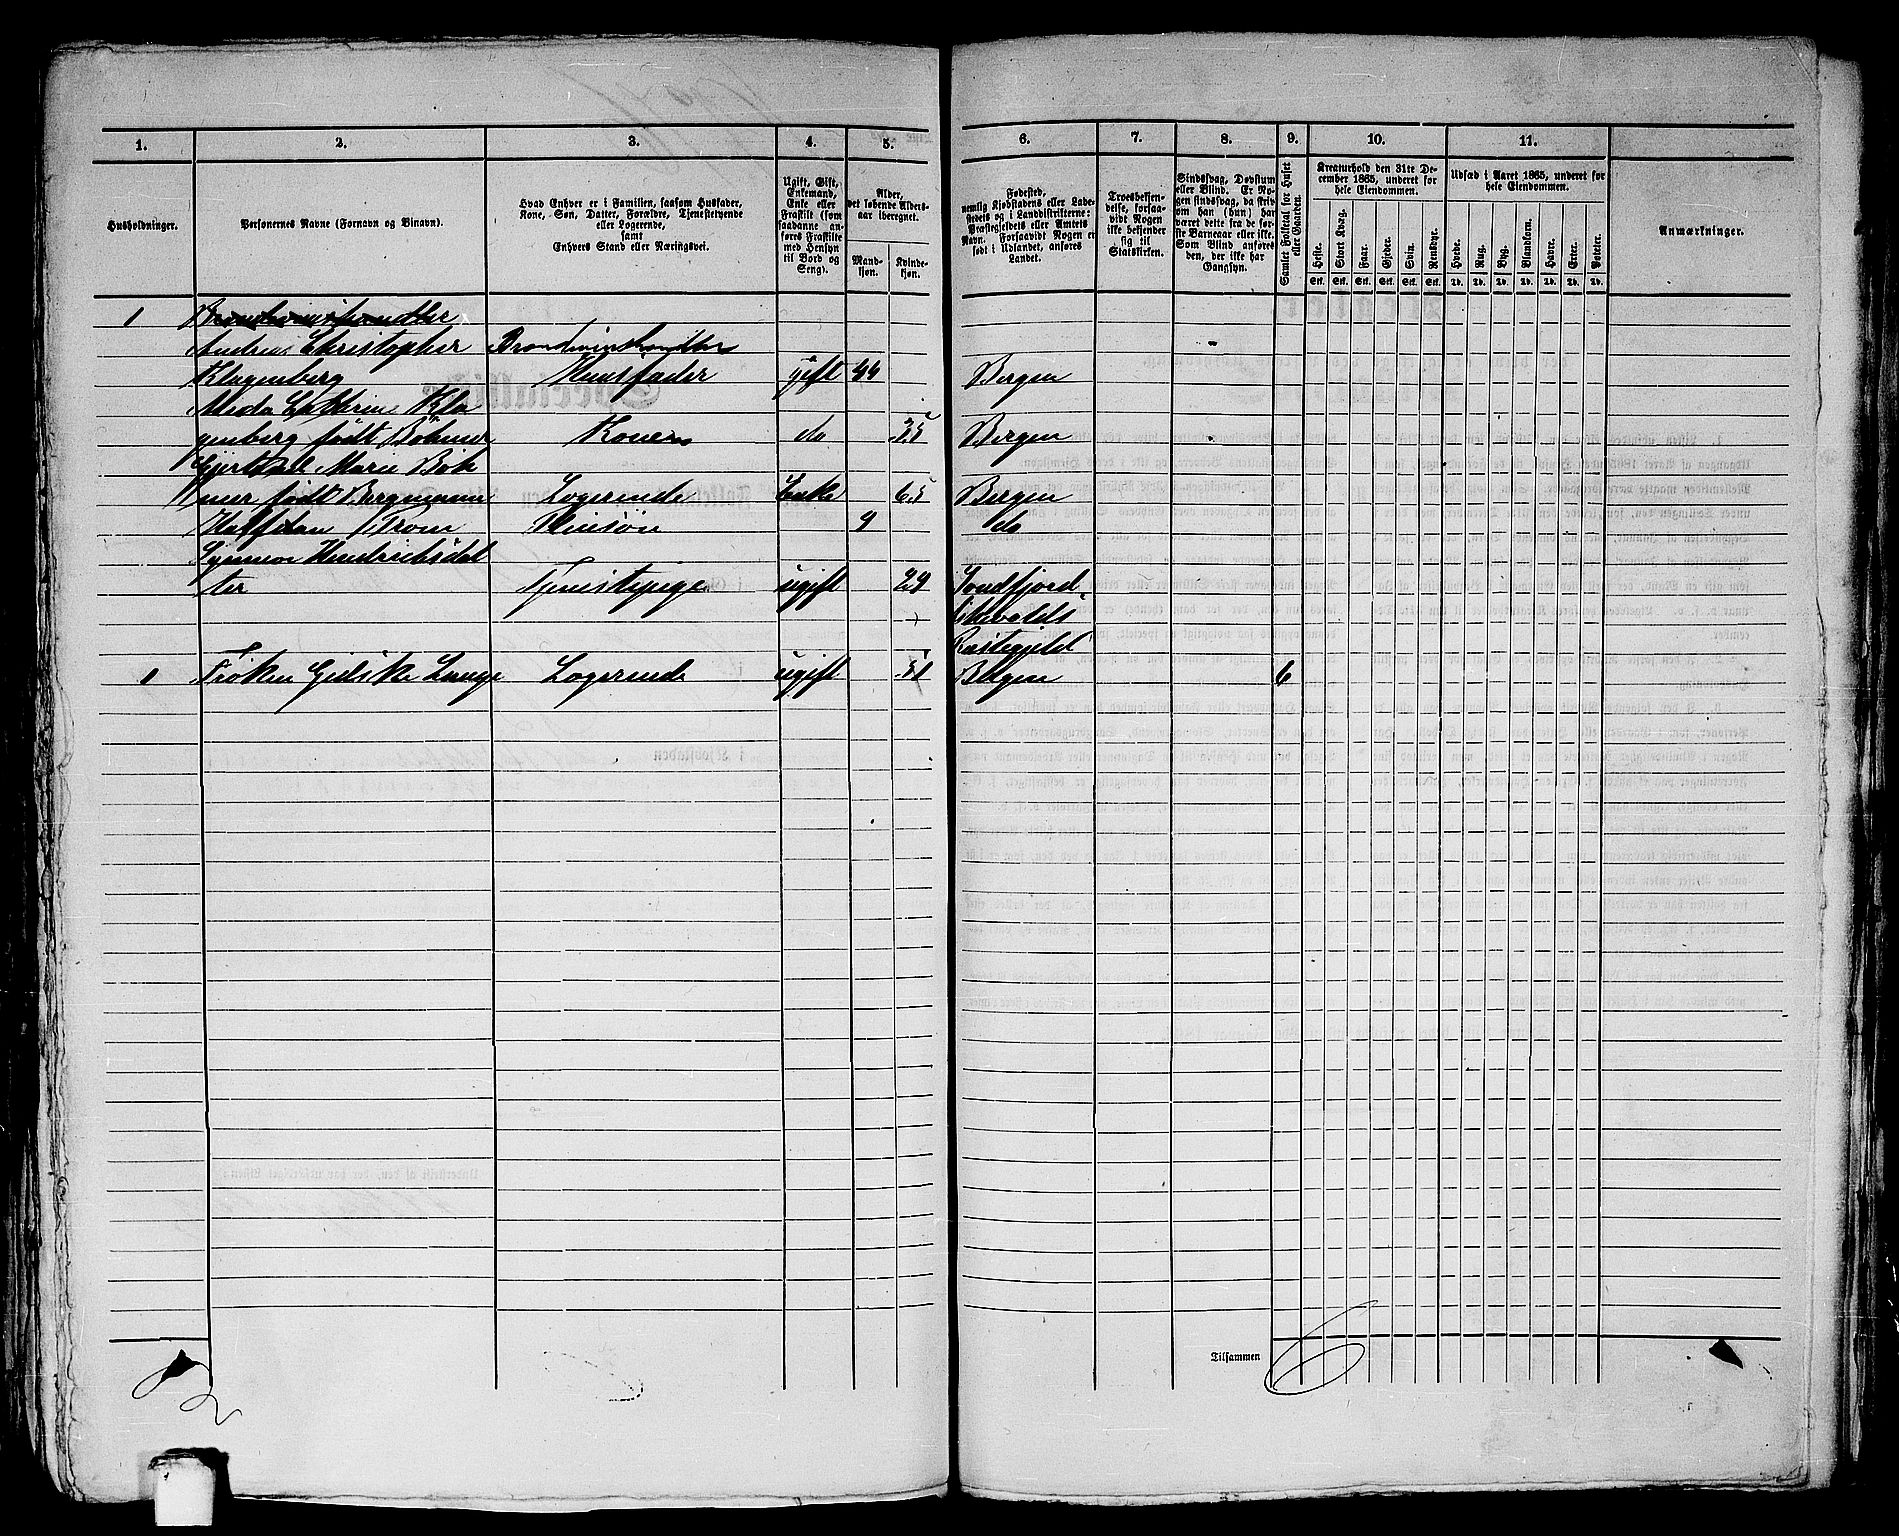 1. 2. 3. 4. 5. 6. 7. 8. 9. 10. 11.
Husholdninger.
Personernes Navne (Fornavn og Binavn).
Hvad Enhver er i Familien, saasom Husfader,
Kone, Søn, Datter, Forældre, Tjenestetyende
eller Logerende,
samt
Enhvers Stand eller Næringsvei.
Ugift, Gift,
Enkemand,
Enke eller
Fraskilt (som
saadanne an-
føres Fraskilte
med Hensyn
til Bord og
Seng).
Alder,
det løbende Alders-
aar iberegnet.
Mand-
kjøn.
Kvinde-
kjøn.
Fødested,
nemlig Kjøbstadens eller Lade-
stedets og i Landdistrikterne:
Præstegjeldets eller Amtets
Navn. Forsaavidt Nogen er
født i Udlandet, anføres
Landet.
Troesbekjen-
delse, forsaa-
vidt Nogen
ikke bekjender
sig til
Statskirken.
Sindssvag, Døvstum
eller Blind. Er No-
gen sindssvag, da skriv
om han (hun) har
været dette fra de før-
ste Barneaar eller ikke.
Som Blind anføres
den, der ikke har
Gangsyn.
Samlet Folketal for Huset
eller Gaarden.
Kreaturhold den 31te De-
cember 1865, underet for
hele Eiendommen.
Heste. Stort Kvæg. Faar. Gjeder. Svin. Rensdyr.
Stk. Stk. Stk. Stk. Stk. Stk.
Udsæd i Aaret 1865, underet for
hele Eiendommen.
Hvede. Rug. Byg. Blandkorn. Havre. Erter. Poteter.
Td. Td. Td. Td. Td. Td. Td.
Anmærkninger.
1 Brændeviinshandler
Andreas Christopher Brændevinshandler
Klagenberg Huusfader gift 44 Bergen
Meda Cathrine Kla
genberg født Böhmer Konen do 35 Bergen
Marie Böh
mer født Bergmann Logerende Enke 65 Bergen
Halfdan Trom Pleiesøn 9 do
Hendriksdat
ter Tjenestepige ugift 29 Søndfjord
Præstegjeld
1 Frøken Gidske Lange Logerende ugift 51 Bergen 6
Tilsammen 6